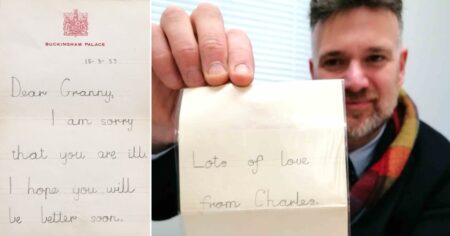 BUCKINGHAM PALACE
15-3-55
Dear Granny,
I am sorry
that you are ill.
I hope you will
be better soon.
Lots of love
from Charles.